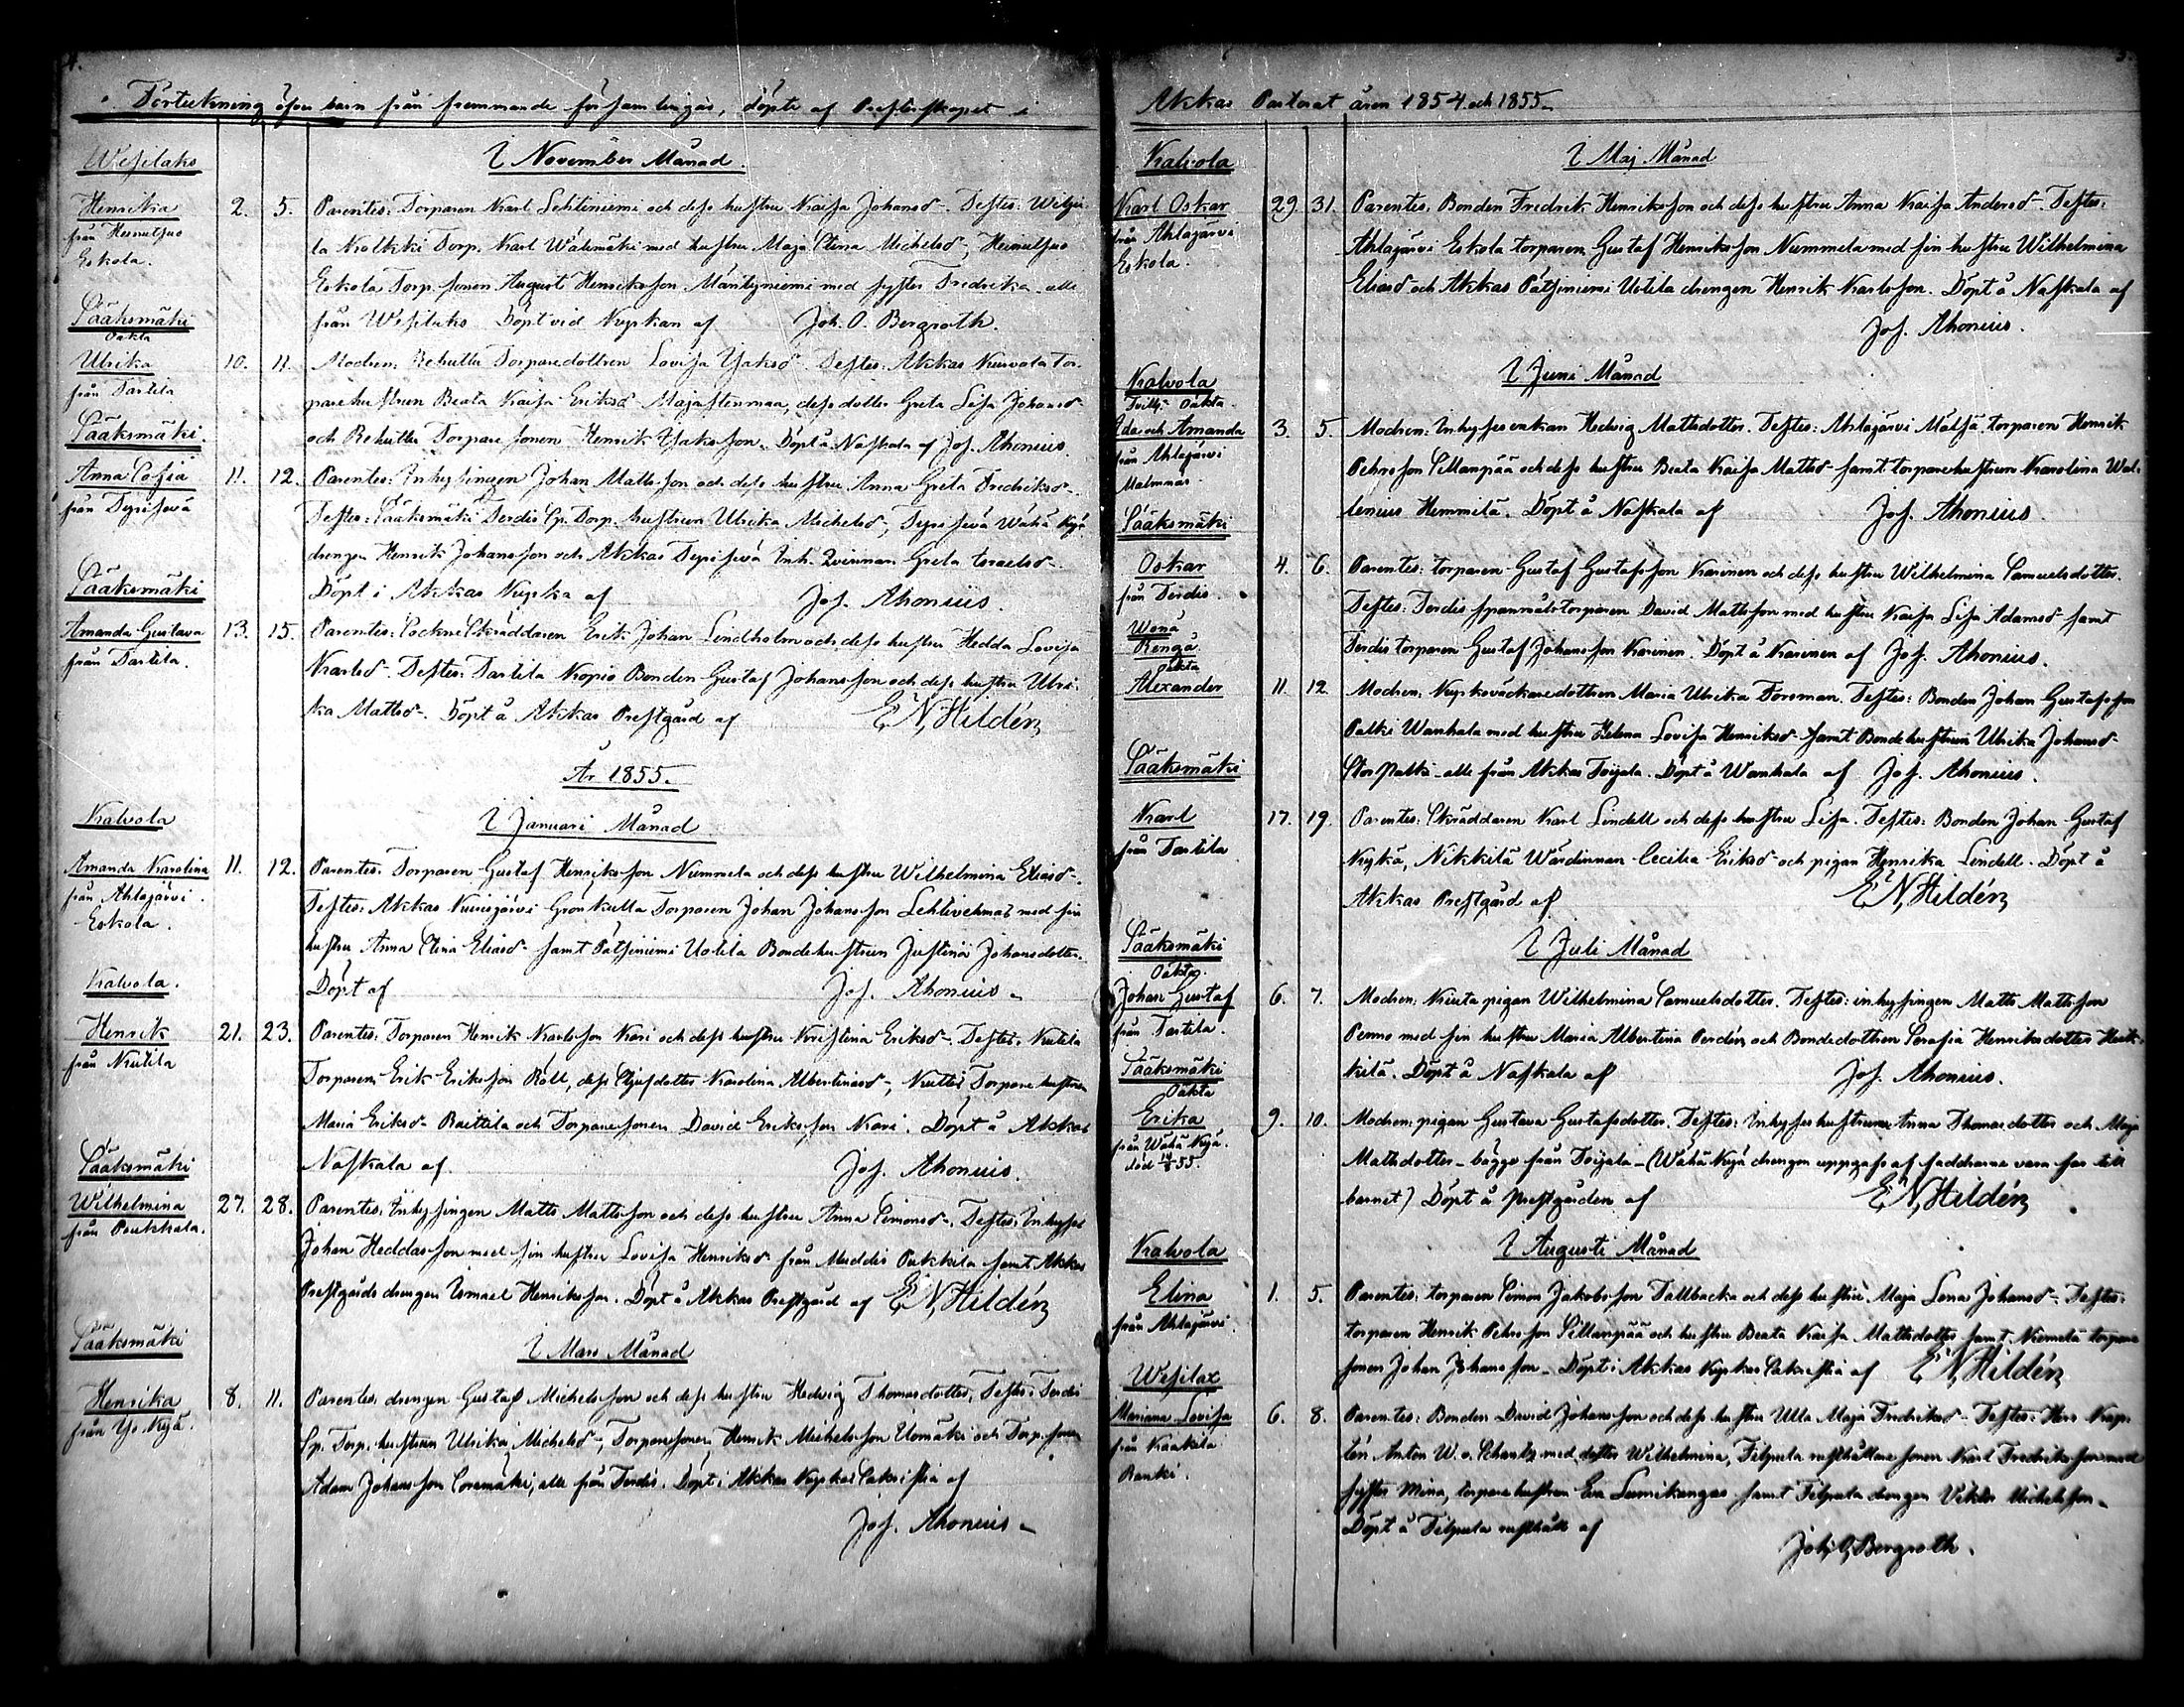 4.
Förteckning öfver barn från fremmande församlingar, döpte af Presterskapet i
Wesilaks
I November Månad.
Henrika
från Hernutjus
Eskola.
2. 5. Parentes: Torparen Karl Lehtiniemi och dess hustru Kaisa Johansd-. Testes:
la Kolkki Torp. Karl Wälimäki med hustru Maja Stina Michelsd-,
Eskola Torp. sonen August Henriksson Mäntyniemi med syster Fredrika alle
från Wesilaks Döpt vid Kyrkan af Joh. O. Bergroth.
Sääksmäki
Oäkta
Ulrika
från Tarttila
10. 11. Modren: Torparedottren Lovisa Isaksd- Testes: Akkas Kurvola Tor-
parehustrun Beata Kaisa Eriksd- Majastenmaa, dess dotter Greta Lisa Johansd-
och Torpare sonen Henrik Isaksson. Döpt å Naskala af Jos. Ahonius.
Sääksmäki.
Anna Sofia
från
11. 12. Parentes: Inhysingen Johan Mattsson och dess hustru Anna Greta Fredriksd-.
Testes: Sääksmäki Terdis Sp. Torp. hustrun Ulrika Michelsd-, Wähä Kyä
drengen Henrik Johansson och Akkas Inh. Qvinnan Greta Israelsd-.
Döpt i Akkas Kyrka af Jos. Ahonius.
Sääksmäki
Amanda Gustava
från Tarttila.
13. 15. Parentes: Sockne Skräddaren Erik Johan Lindholm och dess hustru Hedda Lovisa
Karlsd-. Testes: Tarttila Kopio Bonden Gustaf Johansson och dess hustru Ulri-
ka Mattsd-. Döpt å Akkas Prestgård af E N Hildén
År 1855.
Kalvola
I Januari Månad
Amanda Karolina
från Ahlajärvi
Eskola.
11. 12. Parentes: Torparen Gustaf Henriksson Nummela och dess hustru Wilhelmina Eliasd-.
Testes: Akkas Torparen Johan Johansson Lehtivehmas med sin
hustru Anna Stina Eliasd- samt Pätsiniemi Uotila Bondehustrun Justina Johansdotter.
Döpt af Jos. Ahonius.
Kalvola.
Henrik
från Kutila
21. 23. Parentes: Torparen Henrik Karlsson Kari och dess hustru Kristina Eriksd-. Testes: Kutila
Torparen Erik Eriksson Röll, dess Styfdotter Karolina Albertinasd-, Torpare hustrun
Maria Eriksd- Raittila och Torparesonen David Eriksson Kari. Döpt å Akkas
Naskala af Jos. Ahonius.
Sääksmäki
Wilhelmina
från
27. 28. Parentes: Inhysingen Matts Mattsson och dess hustru Anna Simonsd-, Testes: Inhyses
Johan Heddasson med sin hustru Lovisa Henriksd- från samt Akkas
Prestgårds drengen Ismael Henriksson. Döpt å Akkas Prestgård af E N Hildén
Sääksmäki
I Mars Månad
Henrika
från Yli Kyä.
8. 11. Parentes: drengen Gustaf Michelsson och dess hustru Hedvig Thomasdotter, Testes: Terdis
Sp. Torp. hustrun Ulrika Michelsd-, Torparesonen Henrik Michelsson Ylömäki och Torp. sonen
Adam Johansson Soramäki, alle från Terdis. Döpt i Akkas Kyrkas Sakristia af
Jos. Ahonius.
5.
Akkas Pastorat åren 1854 och 1855.
Kalvola
I Maj Månad
Karl Oskar
från Ahlajärvi
Eskola.
29. 31. Parentes: Bonden Fredrik Henriksson och dess hustru Anna Kaisa Andersd-. Testes:
Ahlajärvi Eskola torparen Gustaf Henriksson Nummela med sin hustru Wilhelmina
Eliasd och Akkas Pätsiniemi Uotila drengen Henrik Karlsson. Döpt å Naskala af
Jos. Ahonius.
I Juni Månad
Kalvola
Tvill: Oäkta
Ida och Amanda
från Ahlajärvi
3. 5. Modren: Inhyses enkan Hedvig Mattsdotter. Testes: Ahlajärvi torparen Henrik
Pehrsson Sillanpää och dess hustru Beata Kaisa Mattsd- samt torparehustrun Karolina Wal-
lenius Hemmilä. Döpt å Naskala af Jos. Ahonius.
Sääksmäki
Oskar
från Terdis.
4. 6. Parentes: torparen Gustaf Gustafsson Karinen och dess hustru Wilhelmina Samuelsdotter.
Testes: Terdis torparen David Mattsson med hustru Kaisa Lisa Adamsd- samt
Terdis torparen Gustaf Johansson Karinen. Döpt å Karinen af Jos. Ahonius.
Wånå
Rengå
Oäkta
Alexander
11. 12. Modren: Kyrkoväktaredottren Maria Ulrika Forsman. Testes: Bonden Johan Gustafsson
Palki Wanhala med hustru Helena Lovisa Henriksd- samt Bondehustrun Ulrika Johansd-
Stor Palki alle från Akkas Toijala. Döpt å Wanhala af Jos. Ahonius.
Sääksmäki
Karl
från Tarttila
17. 19. Parentes: Skräddaren Karl Lindell och dess hustru Lisa. Testes: Bonden Johan Gustaf
Nikkilä Wärdinnan Cecilia Eriksd- och pigan Henrika Lindell. Döpt å
Akkas Prestgård af E N Hildén
I Juli Månad
Sääksmäki
Oäkta.
Johan Gustaf
från Tarttila.
6. 7. Modren: pigan Wilhelmina Samuelsdotter. Testes: inhysingen Matts Mattsson
Penno med sin hustru Maria Albertina och Bondedottren Serafia Henriksdotter Heik-
kilä. Döpt å Naskala af Jos. Ahonius.
Sääksmäki
Oäkta
Erika
från Wähä Kyä.
död 14/8 55.
9. 10. Modren: pigan Gustava Gustafsdotter. Testes: Inhyseshustrurne Anna Thomasdotter och Maja
Mattsdotter – bägge från Toijala – (Wähä Kyä drengen uppgafs af faddrarne vara far till
barnet) Döpt å prestgården af E N Hildén
I Augusti Månad
Kalvola
Elina
från Ahlajärvi.
1. 5. Parentes: torparen Simon Jakobsson Tallbacka och dess hustru Maja Lena Johansd-. Testes:
torparen Henrik Pehrsson Sillanpää och hustru Beata Kaisa Mattsdotter samt Niemelä torpare
sonen Johan Johansson. Döpt i Akkas Kyrkas Sakristia af E N Hildén
Wesilax
Mariana Lovisa
från Kaakila
Panki.
6. 8. Parentes: Bonden David Johansson och dess hustru Ulla Maja Fredriksd-. Testes: Herr Kap-
ten Anton W. v. Schantz med dotter Wilhelmina, Filpula rusthållare sonen Karl Fredriksson med
syster Mina, torpare hustrun Eva Lumikangas samt Filpula drengen Viktor Michelsson.
Döpt å Filpula rusthåll af
Joh. O. Bergroth.